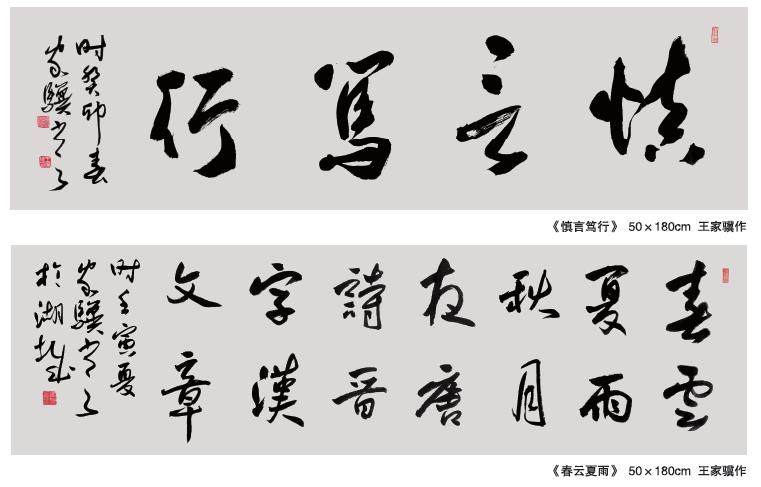 慎言篤行
时癸卯春
家驥书之
《慎言笃行》 50×180cm 王家骥作
春雲
夏雨
秋月
夜唐
詩晋
字漢
文章
时壬寅夏
家驥书之
於湖
《春云夏雨》 50×180cm 王家骥作